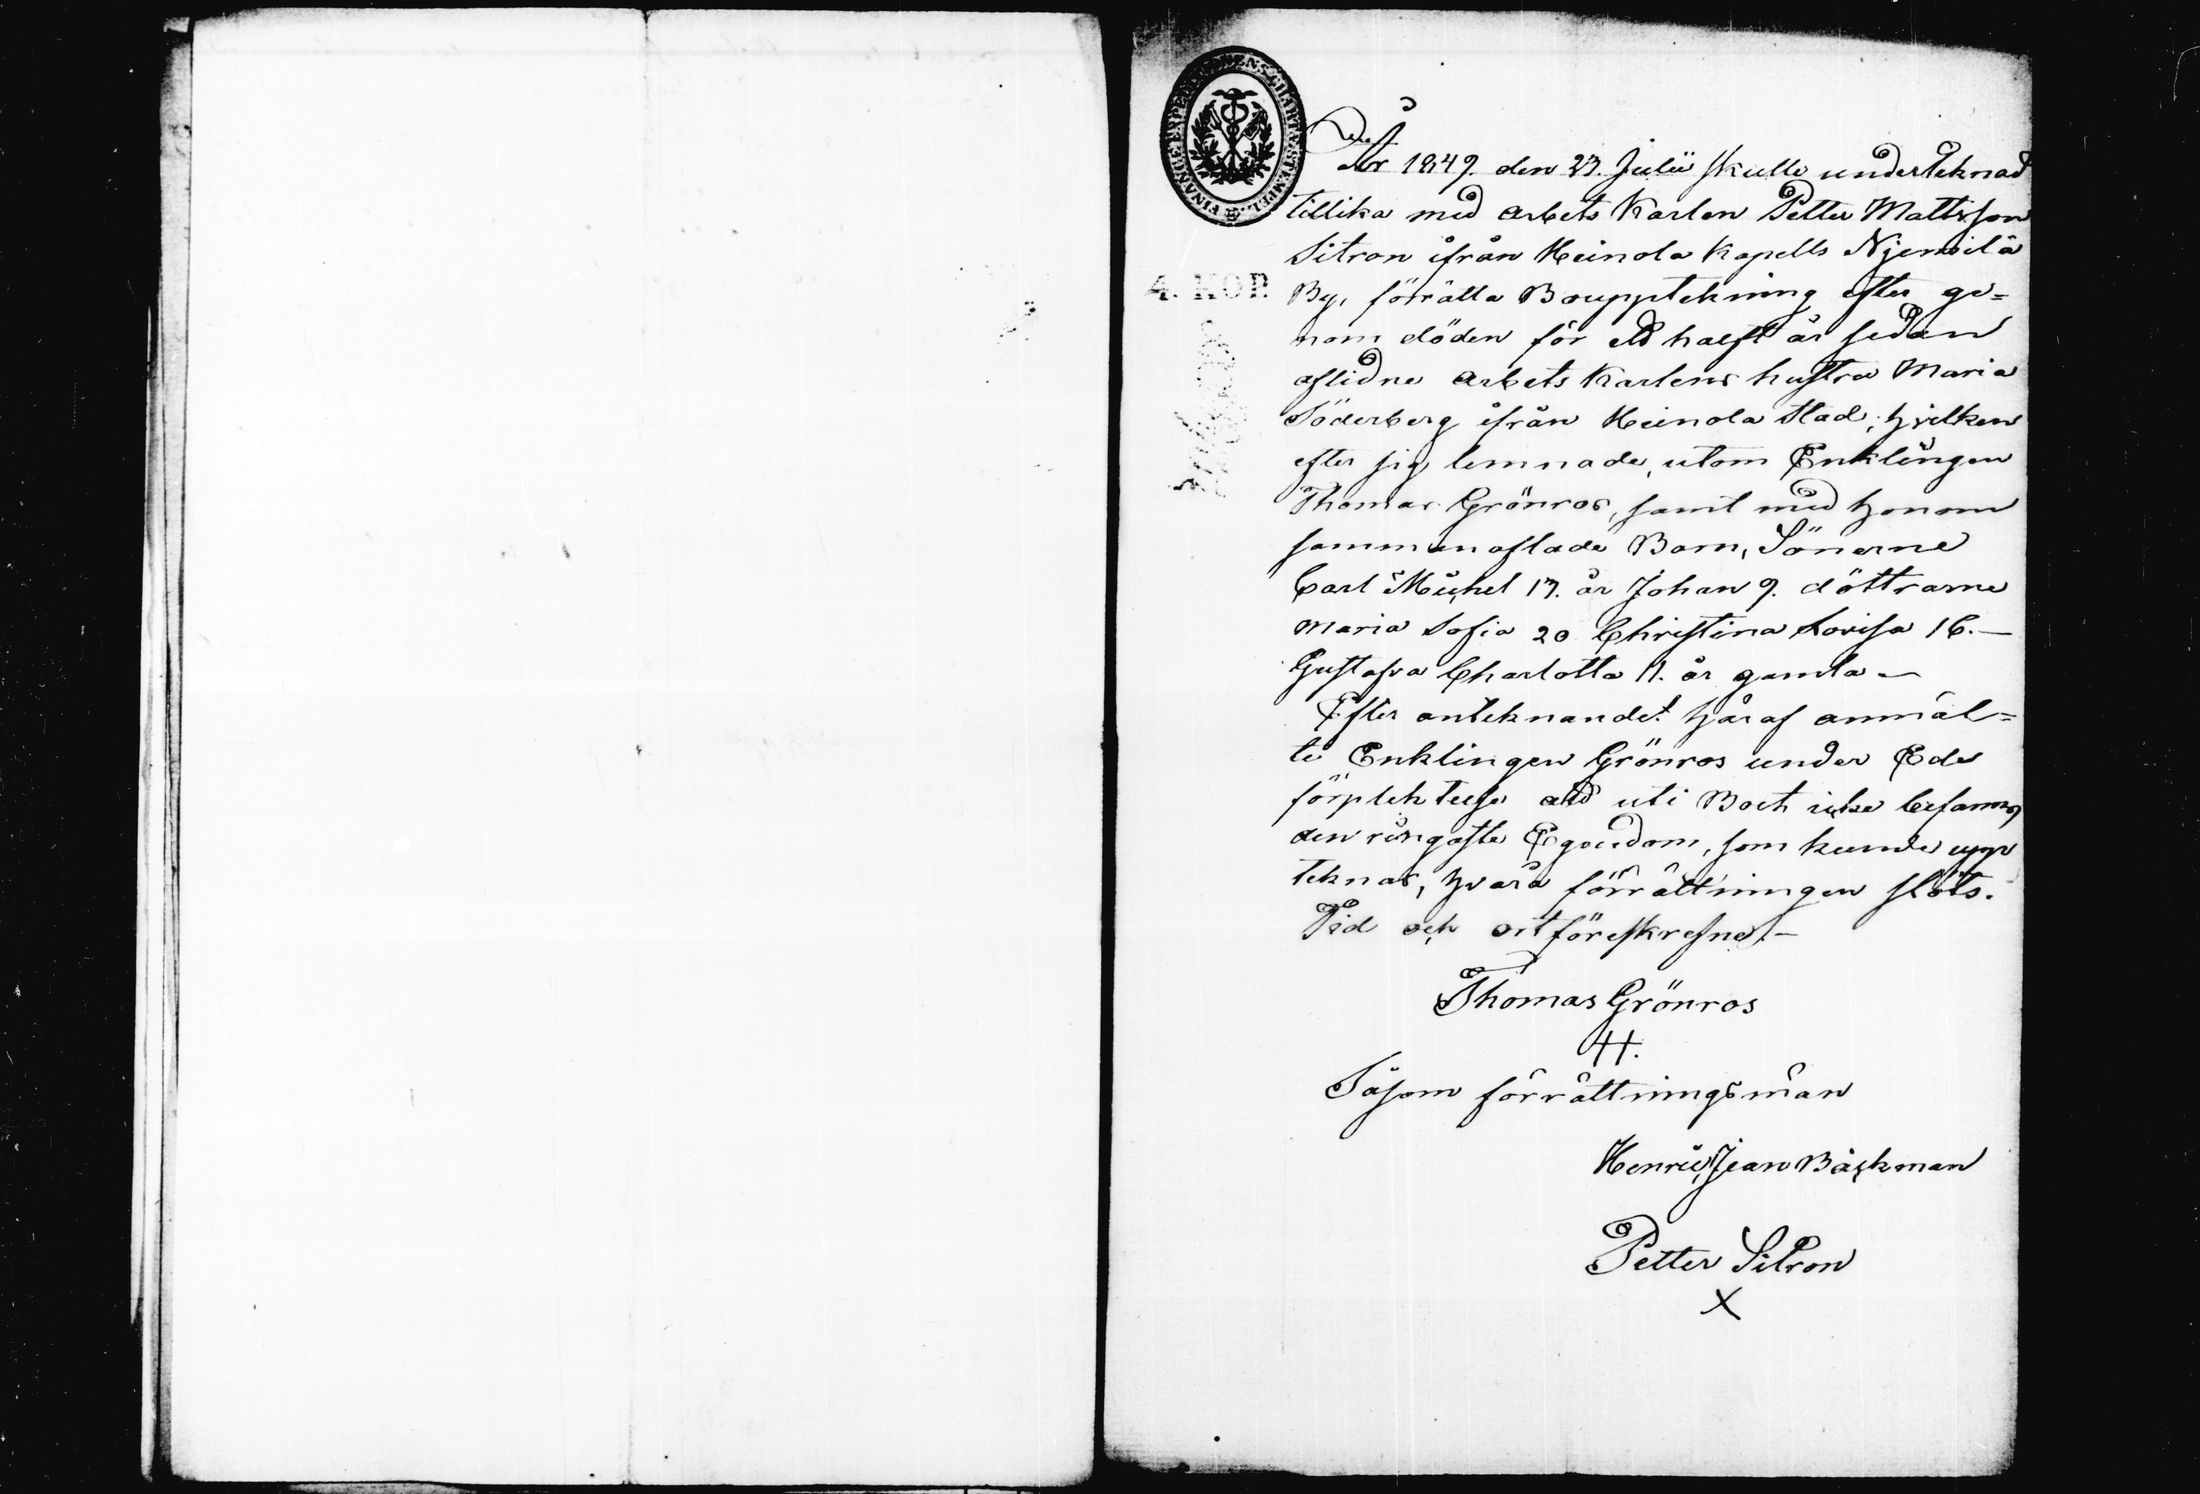 FINANCE EXPEDITIONENS CHARTÆ STEMPEL
4. KOP.
År 1849. den 23. Julii skulle underteknad
tillika med arbets Karlen Petter Mattsson
Sitron ifrån Heinola Kapells Njemilä
By, förrätta Bouppteckning efter ge=
nom döden för ett halft år sedan
aflidne arbets Karlens hustru Maria
Söderberg ifrån Heinola Stad; hvilken
efter sig lemnade, utom Enklingen
Thomas Grönros, samt med honom
sammanaflade Barn, Sönerne
Carl Michel 17. år Johan 9. döttrarne
Maria Sofia 20 Christina Lovisa 16.—
Gustafva Charlotta 11. år gamla —
Efter anteknandet häraf anmäl=
te Enklingen Grönros under Eds
förplektelse att uti Boet icke befanns
den ringaste Egendom, som kunde upp
teknas, hvarå förrättningen slöts.
Tid och ort förskrefne.—
Thomas Grönros
Såsom förrättningsmän
Henric Jean Bäckman
Petter Sitron
X